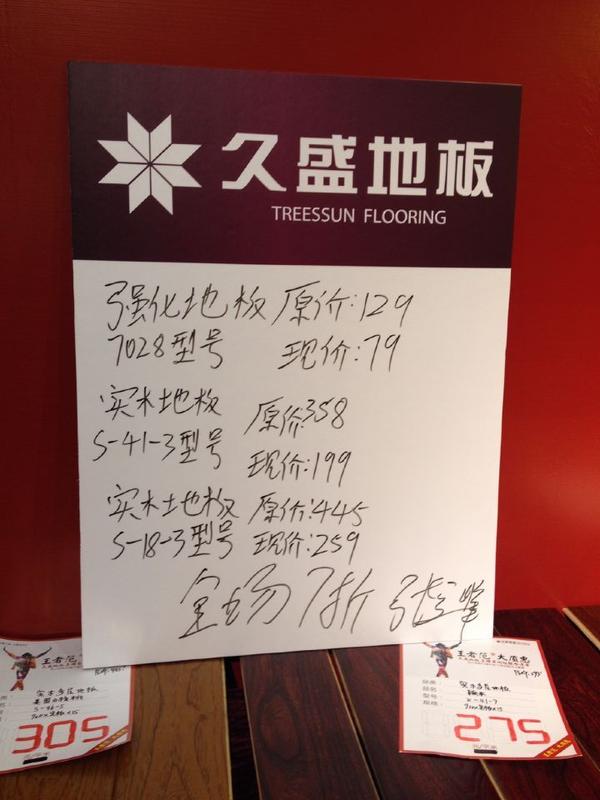 久盛地板
TREESSUN FLOORING
强化地板 原价:129
7028型号 现价:79
实木地板 原价:358
S-41-3型号 现价:199
实木地板 原价:445
S-18-3型号 现价:259
全场7折
王者范
实木多层地板
S-46-5
305
元/平米
王者范 大有惠
品类: 实木多层地板
品名:
型号: K-41-7
规格:
275
元/平米